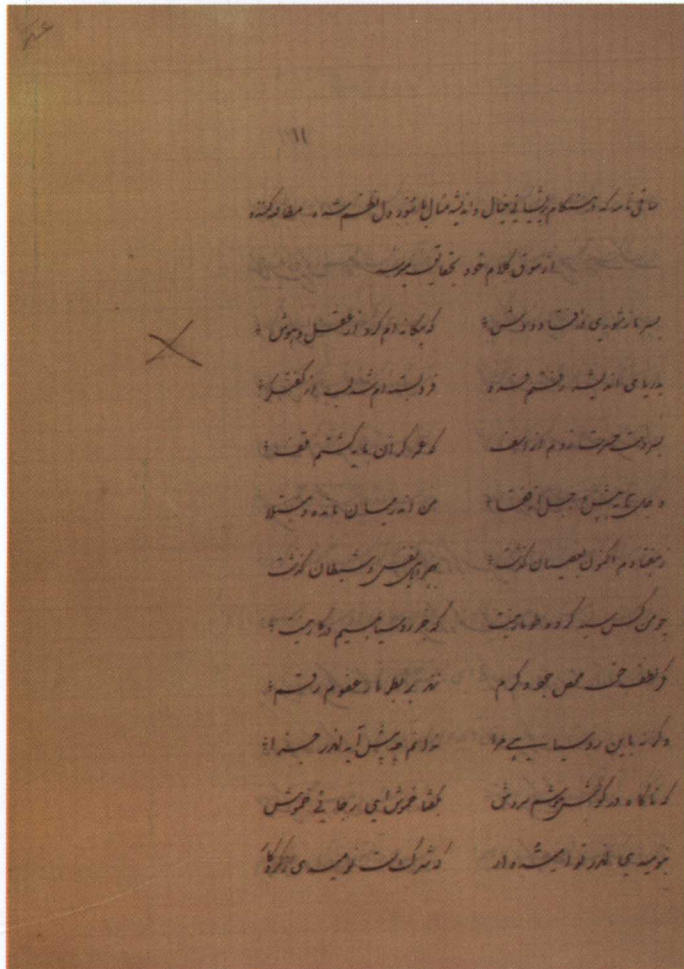 ساقی نامه که در هنگام پریشانی خیال و اندیشه دل نظم شده مطالعه کننده
از سوق کلام خود بحقایق میرسد
بسر باز شوری فتاد دوش که بیگانه ام کرد از عقل و هوش
بدریای اندیشه رفتم فرو بسته ام شد لب از گفتگو
بسر دست حسرت زدم از اسف که عمر گران مایه گشتم تلف
من اندر میان مانده و مبتلا
ز هفتادم اکنون بعصیان گذشت بهمراهی نفس و شیطان گذشت
چو من کس سیه کرده طومار نیست که جز روسیاهیم در کار نیست
گر لطف حق محض جود و کرم زند بر خطر ها ز عفوم رقم
وگرنه باین روسیاهی مرا ندانم چه پیش آید اندر جزا
که ناگاه در گوش هوشم سروش بگفتا خموش ای رجائی خموش
بنومیدی اندر تو که شرک است نومیدی از کردگار